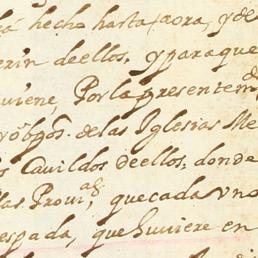 á hecho hasta aora, y de
erin deellos, y paraque
uviene, Por la presente m
y obpos. de las Iglesias Me
s Cavildos deellos, donde
las Provi.as, que cada vno
espada, que huviere en